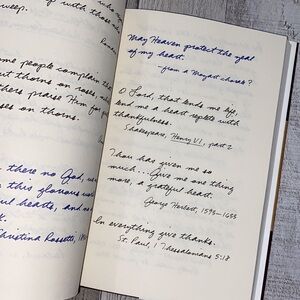 weep.
me people complain tha
ut thorns on roses, wh
thers praise Him for p
ses on thorns.
there no God, us
this glorious wo
ful hearts, and no
Christina Rossetti, 18
May Heaven protect the zeal
of my heart.
from a Mozart chorus?
O Lord, that lends me life,
lend me a heart replete with
thankfulness.
Shakespeare, Henry VI, part 2
Thou has given me so
much... Give me one thing
more, a grateful heart.
George Herbert, 1593-1633
In everything give thanks.
St. Paul, 1 Thessalonians 5:18